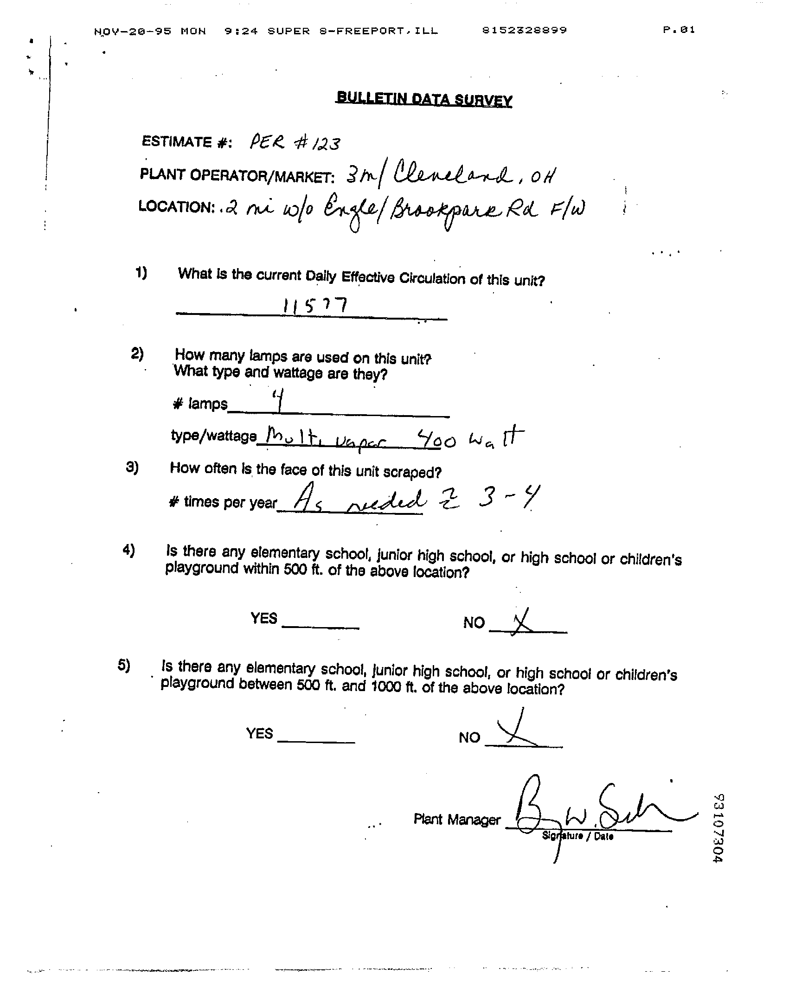 NOV-20-95 MON 9:24 SUPER 8-FREEPORT, ILL 8152328899 P.01
BULLETIN DATA SURVEY
ESTIMATE #: PER #123
PLANT OPERATOR/MARKET: 3m/ Cleveland, OH
LOCATION: .2 mi w/o Engle/Brookpark Rd F/W
1) What is the current Daily Effective Circulation of this unit?
11577
2) How many lamps are used on this unit?
What type and wattage are they?
# lamps 4
type/wattage Multi vapor 400 watt
3) How often is the face of this unit scraped?
# times per year As needed 3-4
4) Is there any elementary school, junior high school, or high school or children's
playground within 500 ft. of the above location?
YES NO X
5) Is there any elementary school, junior high school, or high school or children's
playground between 500 ft. and 1000 ft. of the above location?
YES NO X
Plant Manager
Signature / Date
93107304